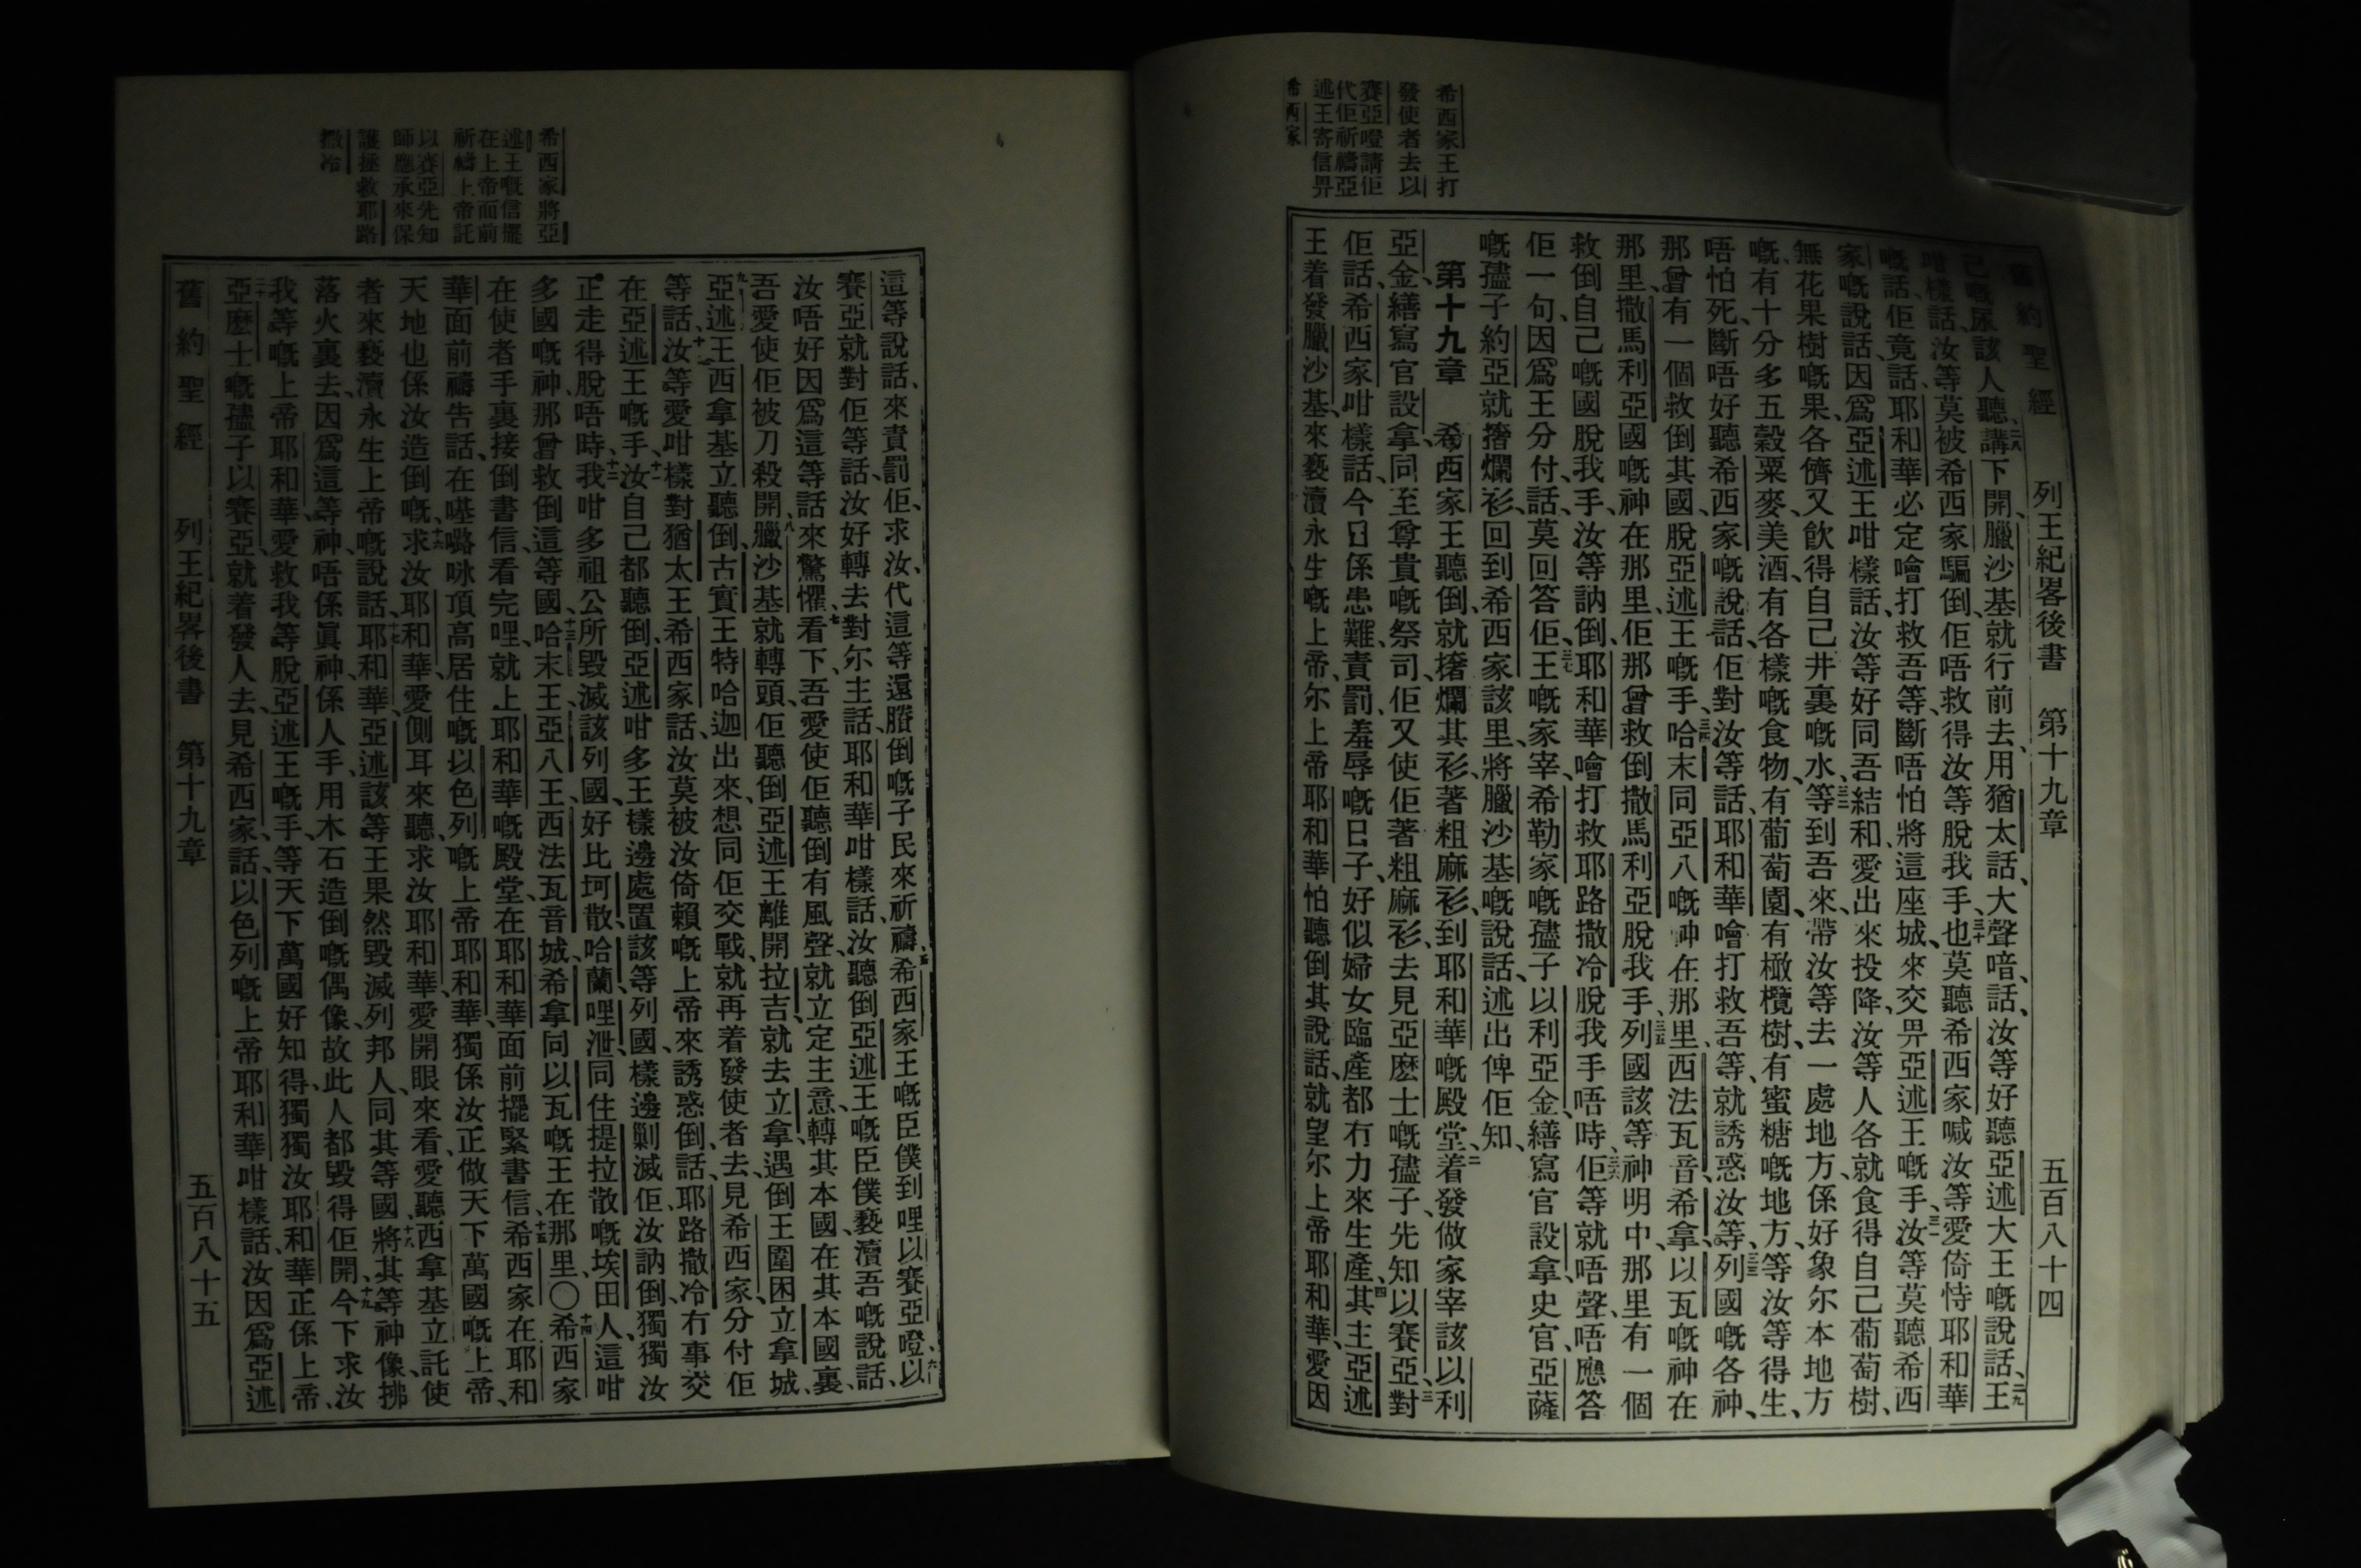 舊約聖經 列王紀畧後書 第十九章 五百八十四
希西家王打
發使者去以
賽亞噔請佢
代佢祈禱亞
述王寄信畀
希西家
己嘅尿、該人聽講、二八下開、臘沙基就行前去、用猶太話、大聲喑話、汝等好聽亞述大王嘅說話、二九王
咁樣話、汝等莫被希西家騙倒、佢唔救得汝等脫我手、三十也莫聽希西家喊汝等愛倚恃耶和華
嘅話、佢竟話、耶和華必定噲打救吾等、斷唔怕將這座城、來交畀亞述王嘅手、三一汝等莫聽希西
家嘅說話、因爲亞述王咁樣話、汝等好同吾結和、愛出來投降、汝等人各就食得自己葡萄樹、
無花果樹嘅果、各儕又飲得自己井裏嘅水、三二等到吾來、帶汝等去一處地方、係好象尔本地方
嘅、有十分多五穀粟麥、美酒、有各樣嘅食物、有葡萄園、有橄欖樹、有蜜糖嘅地方、等汝等得生、
唔怕死、斷唔好聽希西家嘅說話、佢對汝等話、耶和華噲打救吾等、就誘惑汝等、三三列國嘅各神、
那曾有一個救倒其國、脫亞述王嘅手、三四哈末同亞八嘅神在那里、西法瓦音、希拿、以瓦嘅神在
那里、撒馬利亞國嘅神在那里、佢那曾救倒撒馬利亞脫我手、三五列國該等神明中、那里有一個
救倒自己嘅國脫我手、汝等訥倒、耶和華噲打救耶路撒冷脫我手唔時、三六佢等就唔聲、唔應答
佢一句、因爲王分付話、莫回答佢、三七王嘅家宰、希勒家嘅孻子以利亞金、繕寫官設拿、史官、亞薩
嘅孻子約亞、就撦爛衫、回到希西家該里、將臘沙基嘅說話、述出俾佢知、
第十九章 希西家王聽倒、就撦爛其衫、著粗麻衫、到耶和華嘅殿堂、二着發做家宰該以利
亞金、繕寫官設拿、同至尊貴嘅祭司、佢又使佢著粗麻衫、去見亞麽士嘅孻子先知以賽亞、三對
佢話、希西家咁樣話、今日係患難、責罰、羞辱嘅日子、好似婦女臨產、都冇力來生產、四其主亞述
王着發臘沙基、來褻瀆永生嘅上帝、尔上帝耶和華怕聽倒其說話、就望尔上帝耶和華、愛因
希西家將亞
述王嘅信擺
在上帝面前
祈禱上帝託
以賽亞先知
師應承來保
護拯救耶路
撒冷
這等說話、來責罰佢、求汝代這等還賸倒嘅子民來祈禱、五希西家王嘅臣僕到哩以賽亞噔、六以
賽亞就對佢等話、汝好轉去對尔主話、耶和華咁樣話、汝聽倒亞述王嘅臣僕、褻瀆吾嘅說話、
汝唔好因爲這等話來驚懼、七看下、吾愛使佢聽倒有風聲、就立定主意、轉其本國、在其本國裏、
吾愛使佢被刀殺開、八臘沙基就轉頭、佢聽倒亞述王離開拉吉、就去立拿、遇倒王圍困立拿城、
九亞述王西拿基立聽倒、古實王特哈迦出來、想同佢交戰、就再着發使者、去見希西家、分付佢
等話、十汝等愛咁樣對猶太王希西家話、汝莫被汝倚賴嘅上帝、來誘惑倒、話、耶路撒冷冇事交
在亞述王嘅手、十一汝自己都聽倒、亞述咁多王樣邊處置該等列國、樣邊剿滅佢、汝訥倒、獨獨汝
正走得脫唔時、十二我咁多祖公所毀滅該列國、好比坷散、哈蘭、哩泄、同住提拉散嘅埃田人、這咁
多國嘅神、那曾救倒這等國、十三哈末王、亞八王、西法瓦音城、希拿、同以瓦嘅王在那里、〇十四希西家
在使者手裏接倒書信、看完哩、就上耶和華嘅殿堂、在耶和華面前擺緊書信、十五希西家在耶和
華面前禱告話、在㗲嚕咏頂高居住嘅以色列嘅上帝耶和華、獨係汝正做天下萬國嘅上帝、
天地也係汝造倒嘅、十六求汝耶和華、愛側耳來聽、求汝耶和華、愛開眼來看、愛聽西拿基立託使
者來褻瀆永生上帝嘅說話、十七耶和華、亞述該等王果然毀滅列邦人、同其等國、十八將其等神像、拂
落火裏去、因爲這等神、唔係眞神、係人手、用木石造倒嘅偶像、故此人都毀得佢開、十九今下求汝
我等嘅上帝耶和華、愛救我等脫亞述王嘅手、等天下萬國好知得、獨獨汝耶和華正係上帝、
二十亞麽士嘅孻子以賽亞、就着發人去、見希西家、話、以色列嘅上帝耶和華咁樣話、汝因爲亞述
舊約聖經 列王紀畧後書 第十九章 五百八十五